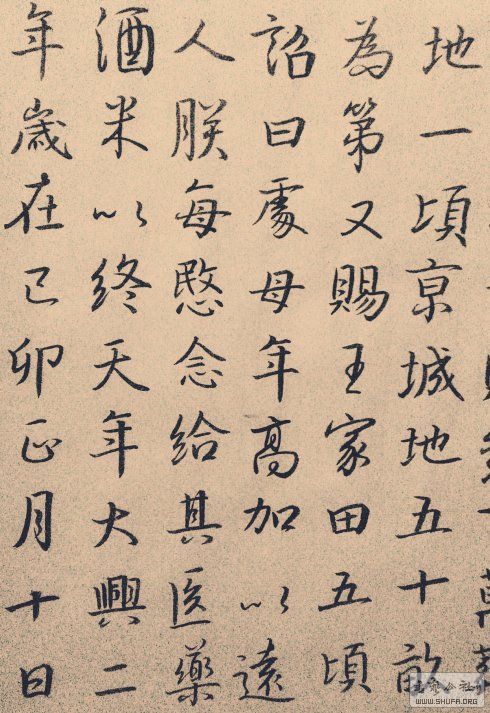 地一頃京城地五十畝
為第又賜王家田五頃
詔曰處母年高加以遠
人朕每愍念給其医藥
酒米以終天年大興二
年歲在己卯正月十日
WWW.SHUFA.ORG